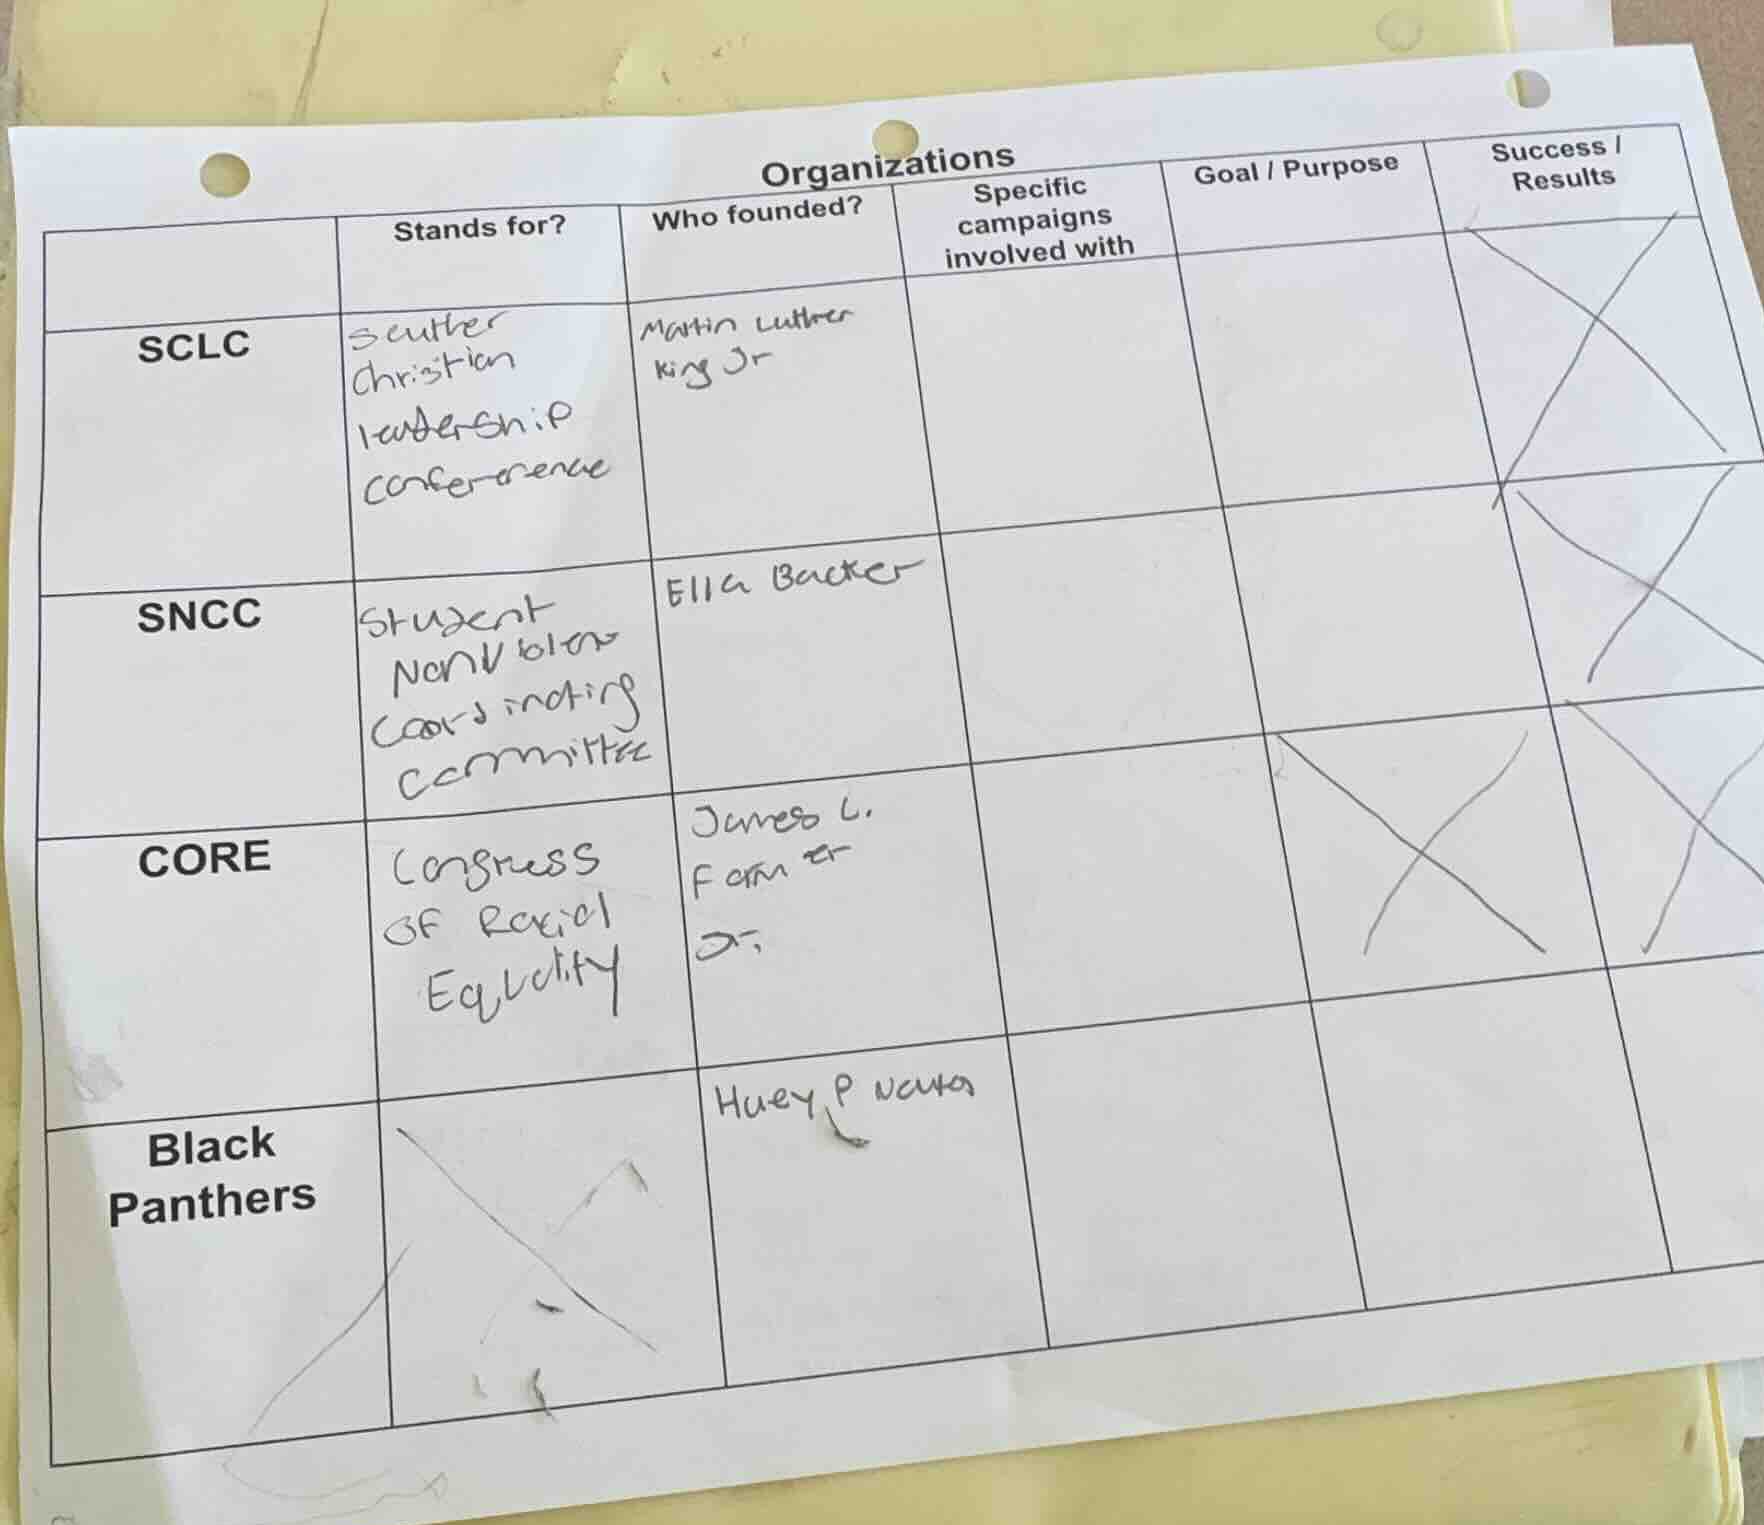 Organizations
Stands for?
Who founded?
Specific
campaigns
involved with
Goal / Purpose
Success /
Results
SCLC
Souther
Christian
leadership
conference
Martin Luther
King Jr
SNCC
Student
Nonviolen
Coordinating
Committee
Ella Backer
CORE
Congress
OF Racial
Equality
James L.
Farmer
Jr.
Black
Panthers
Huey P